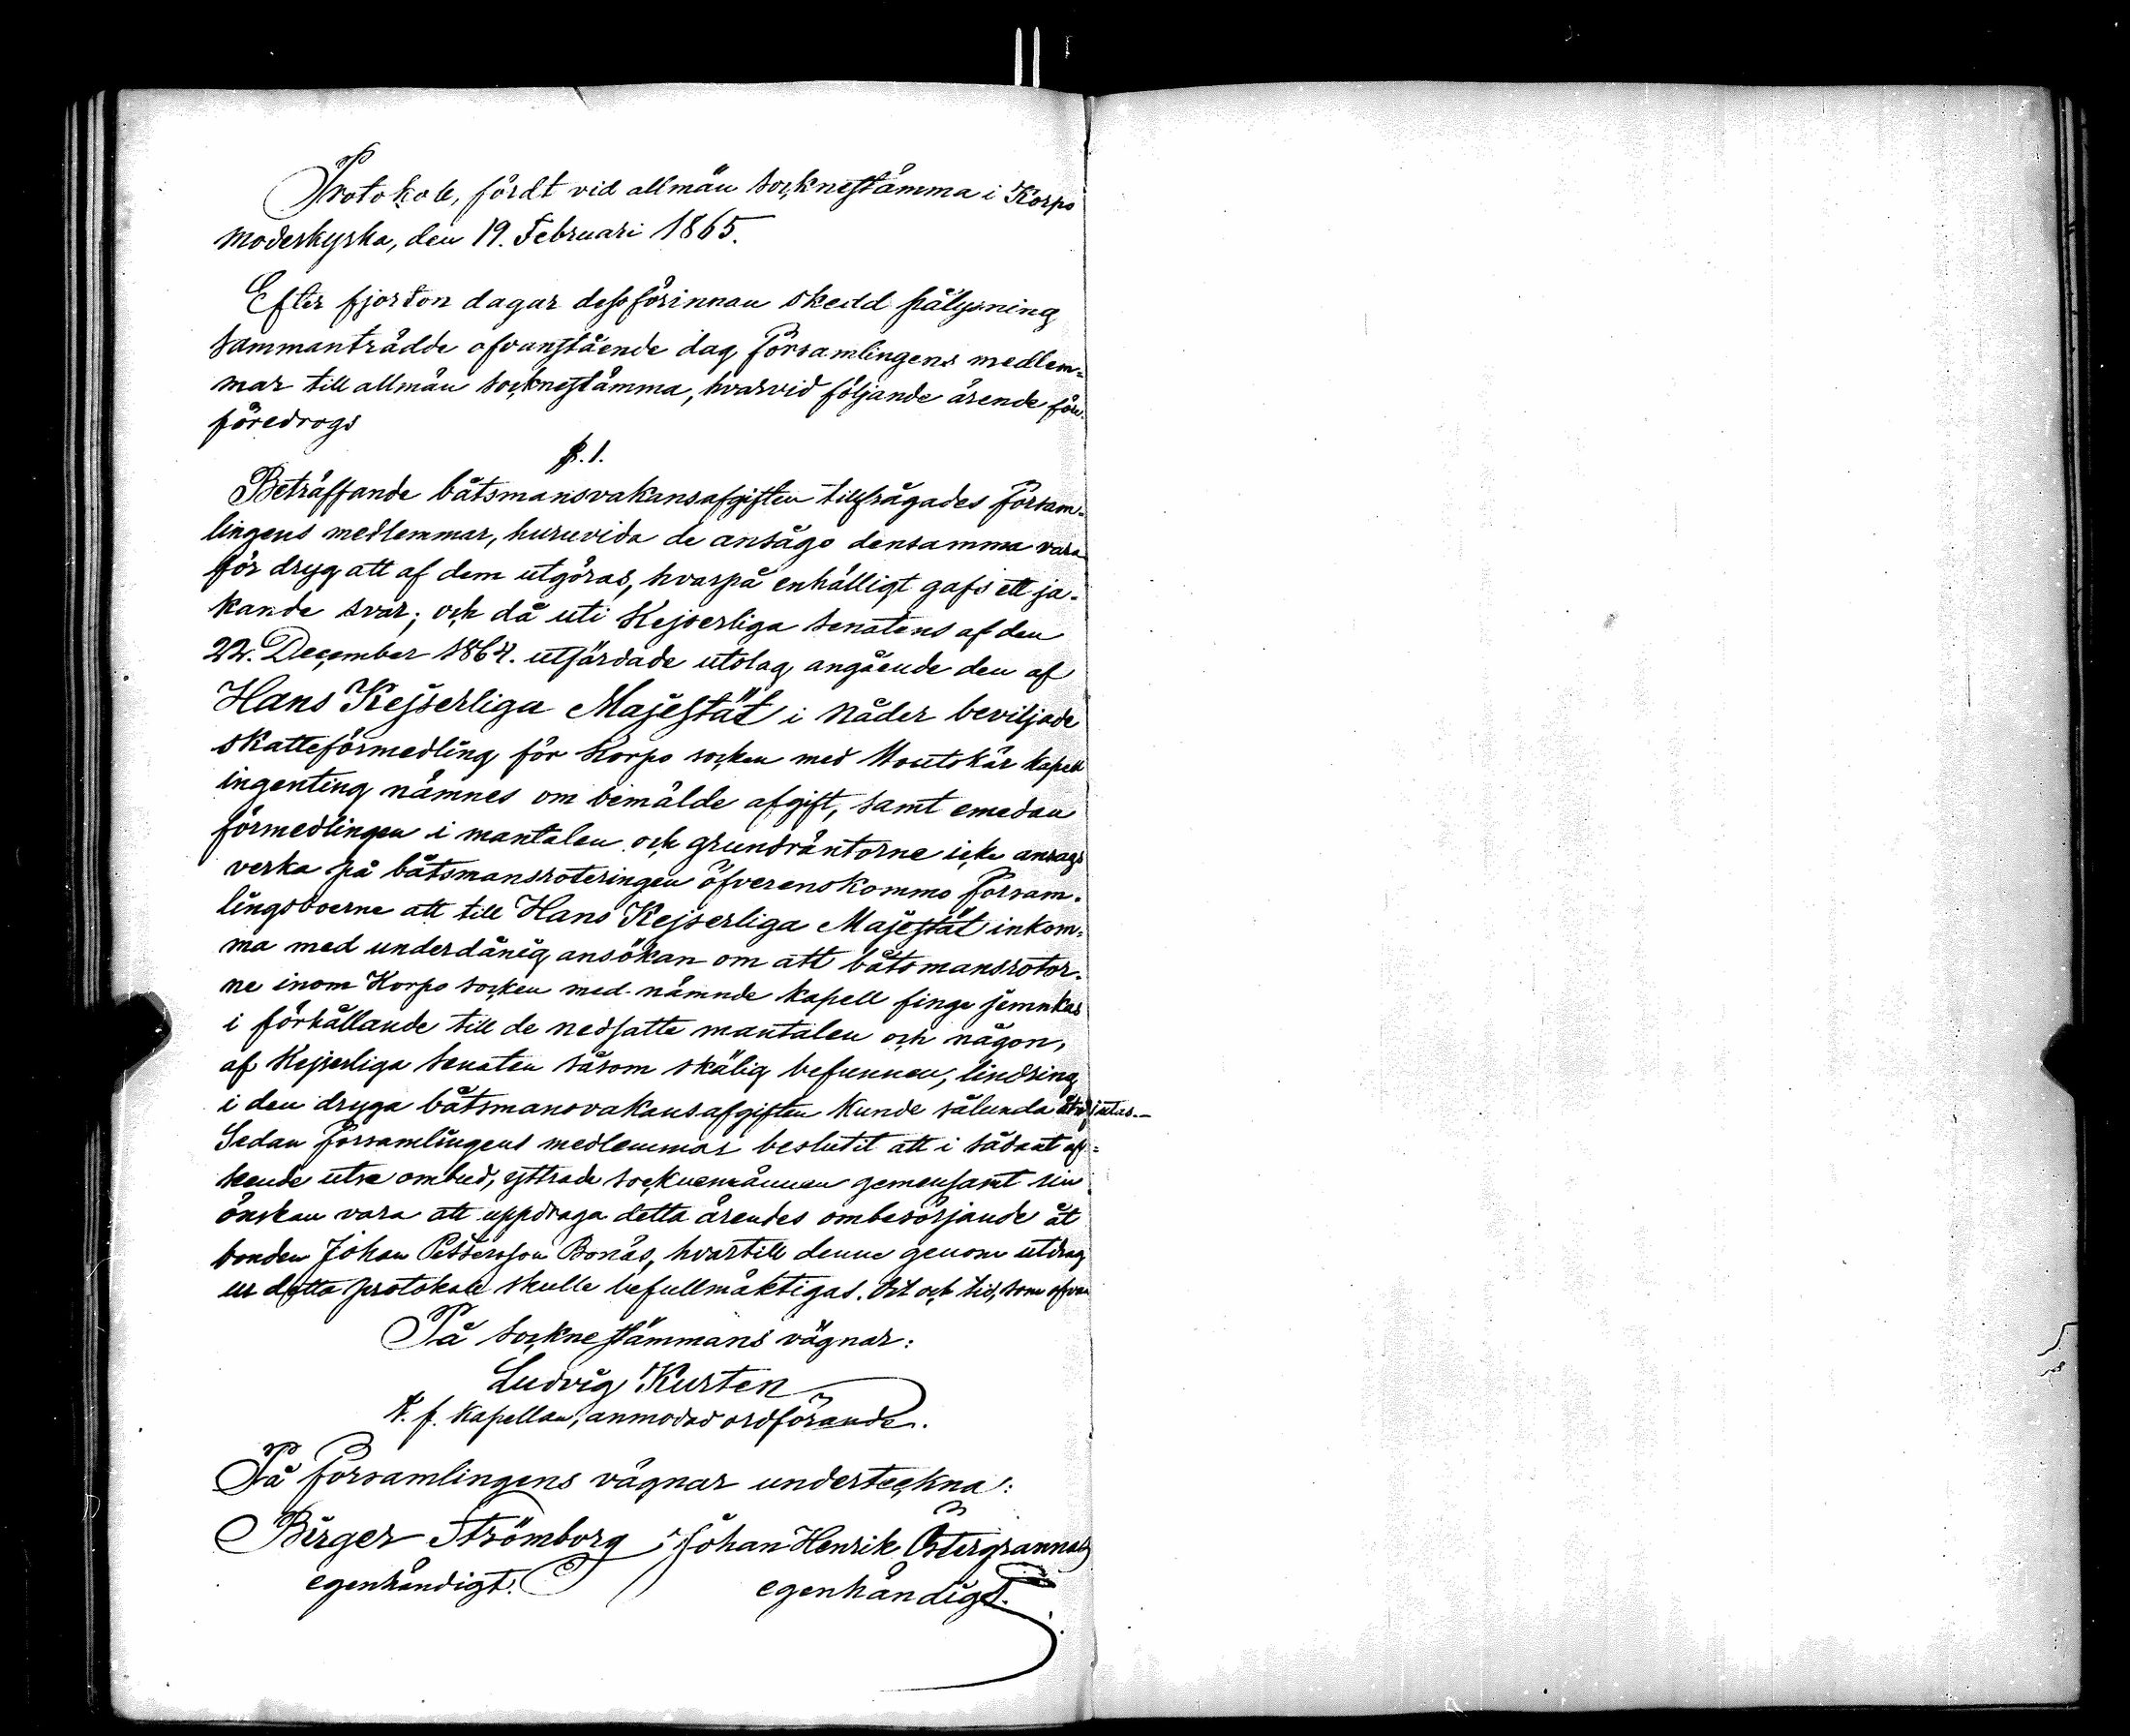 Protokoll, fördt vid allmän sockneståmma i Korpo
moderkyrka, den 19. Februari 1865.
Efter fjorton dagar dessförinnan skedd pålysning
sammanträdde ofvanstående dag församlingens medlem-
mar till allmän socknestämma, hvarvid följande ärende
föredrogs
§. 1.
Beträffande båtsmansvakansafgiften tillfrågades försam-
lingens medlemmar, huruvida de ansågo densamma vara
för dryg att af dem utgöras, hvarpå enhälligt gafs ett ja-
kande svar; och då uti Kejserliga Senatens af den
22. December 1864. utfärdade utslag angående den af
Hans Kejserliga Majestät i Nåder beviljade
skatteförmedling för Korpo socken med Houtskär kapell
ingenting nämnes om bemälde afgift, samt emedan
förmedlingen i mantalen och grundräntorne icke ansags
verka på båtsmansroteringen öfverenskommo försam-
lingsboerne att till Hans Kejserliga Majestät inkom-
ma med underdånig ansökan om att båtsmansrotor-
ne inom Korpo socken med nämnde kapell finge jemnkas
i förhållande till de nedsatte mantalen och någon,
af Kejserliga Senaten såsom skälig befunnen, lindring
i den dryga båtsmansvakansafgiften kunde sålunda åtnjutas.—
Sedan församlingens medlemmar beslutit att i sådant af-
seende utse ombud, yttrade sockenemännen gemensamt sin
önskan vara att uppdraga detta ärendes ombesörjande åt
bonden Johan Pettersson Bonäs, hvartill denne genom utdrag
ur detta protokoll skulle befullmäktigas. Ort och tid, som ofvan
På socknestämmans vägnar:
Ludvig Kursten
t. f. Kapellan, anmodad ordförande.
På församlingens vägnar underteckna:
Birger Strömborg Johan Henrik Östergrannas
egenhändigt. egenhändigt.